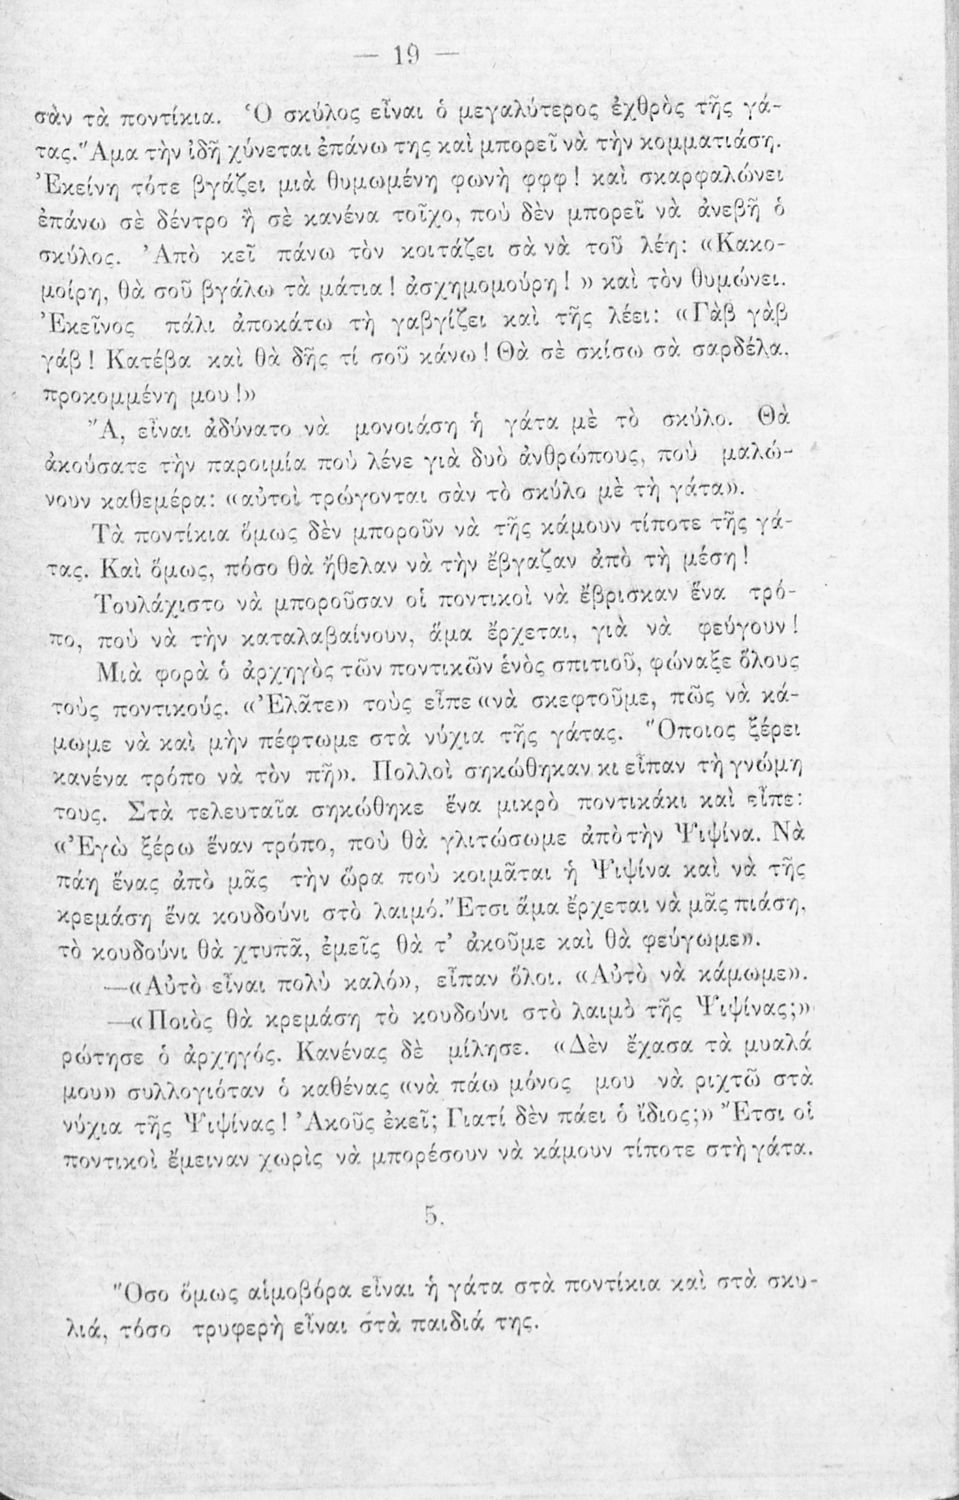 — 19 —
σὰν τὰ ποντίκια. Ὁ σκύλος εἶναι ὁ μεγαλύτερος ἐχθρὸς τῆς γά-
τας. Ἅμα τὴν ἰδῇ χύνεται ἐπάνω της καὶ μπορεῖ νὰ τὴν κομματιάσῃ.
Ἐκείνη τότε βγάζει μιὰ θυμωμένη φωνὴ φφφ! καὶ σκαρφαλώνει
ἐπάνω σὲ δέντρο ἢ σὲ κανένα τοῖχο, ποὺ δὲν μπορεῖ νὰ ἀνεβῇ ὁ
σκύλος. Ἀπὸ κεῖ πάνω τὸν κοιτάζει σὰ νὰ τοῦ λέῃ: «Κακο-
μοίρη, θὰ σοῦ βγάλω τὰ μάτια! ἀσχημομούρη!» καὶ τὸν θυμώνει.
Ἐκεῖνος πάλι ἀποκάτω τὴ γαβγίζει καὶ τῆς λέει: «Γὰβ γὰβ
γάβ! Κατέβα καὶ θὰ δῇς τί σοῦ κάνω! Θὰ σὲ σκίσω σὰ σαρδέλα,
προκομμένη μου!»
Ἄ, εἶναι ἀδύνατο νὰ μονοιάσῃ ἡ γάτα μὲ τὸ σκύλο. Θὰ
ἀκούσατε τὴν παροιμία ποὺ λένε γιὰ δυὸ ἀνθρώπους, ποὺ μαλώ-
νουν καθεμέρα: «αὐτοὶ τρώγονται σὰν τὸ σκύλο μὲ τὴ γάτα».
Τὰ ποντίκια ὅμως δὲν μποροῦν νὰ τῆς κάμουν τίποτε τῆς γά-
τας. Καὶ ὅμως, πόσο θὰ ἤθελαν νὰ τὴν ἔβγαζαν ἀπὸ τὴ μέση!
Τουλάχιστο νὰ μποροῦσαν οἱ ποντικοὶ νὰ ἔβρισκαν ἕνα τρό-
πο, ποὺ νὰ τὴν καταλαβαίνουν, ἅμα ἔρχεται, γιὰ νὰ φεύγουν!
Μιὰ φορὰ ὁ ἀρχηγὸς τῶν ποντικῶν ἑνὸς σπιτιοῦ, φώναξε ὅλους
τοὺς ποντικούς. «Ἐλᾶτε» τοὺς εἶπε «νὰ σκεφτοῦμε, πῶς νὰ κά-
μωμε νὰ καὶ μὴν πέφτωμε στὰ νύχια τῆς γάτας. Ὅποιος ξέρει
κανένα τρόπο νὰ τὸν πῇ». Πολλοὶ σηκώθηκαν κι εἶπαν τὴ γνώμη
τους. Στὰ τελευταῖα σηκώθηκε ἕνα μικρὸ ποντικάκι καὶ εἶπε:
«Ἐγὼ ξέρω ἕναν τρόπο, ποὺ θὰ γλιτώσωμε ἀπὸ τὴν Ψιψίνα. Νὰ
πάῃ ἕνας ἀπὸ μᾶς τὴν ὥρα ποὺ κοιμᾶται ἡ Ψιψίνα καὶ νὰ τῆς
κρεμάσῃ ἕνα κουδούνι στὸ λαιμό. Ἔτσι ἅμα ἔρχεται νὰ μᾶς πιάσῃ,
τὸ κουδούνι θὰ χτυπᾶ, ἐμεῖς θὰ τ’ ἀκοῦμε καὶ θὰ φεύγωμε».
—«Αὐτὸ εἶναι πολὺ καλό», εἶπαν ὅλοι. «Αὐτὸ νὰ κάμωμε».
—«Ποιὸς θὰ κρεμάσῃ τὸ κουδούνι στὸ λαιμὸ τῆς Ψιψίνας;»
ρώτησε ὁ ἀρχηγός. Κανένας δὲ μίλησε. «Δὲν ἔχασα τὰ μυαλά
μου» συλλογιόταν ὁ καθένας «νὰ πάω μόνος μου νὰ ριχτῶ στὰ
νύχια τῆς Ψιψίνας! Ἀκοῦς ἐκεῖ; Γιατί δὲν πάει ὁ ἴδιος;» Ἔτσι οἱ
ποντικοὶ ἔμειναν χωρὶς νὰ μπορέσουν νὰ κάμουν τίποτε στὴ γάτα.
5.
Ὅσο ὅμως αἱμοβόρα εἶναι ἡ γάτα στὰ ποντίκια καὶ στὰ σκυ-
λιά, τόσο τρυφερὴ εἶναι στὰ παιδιά της.